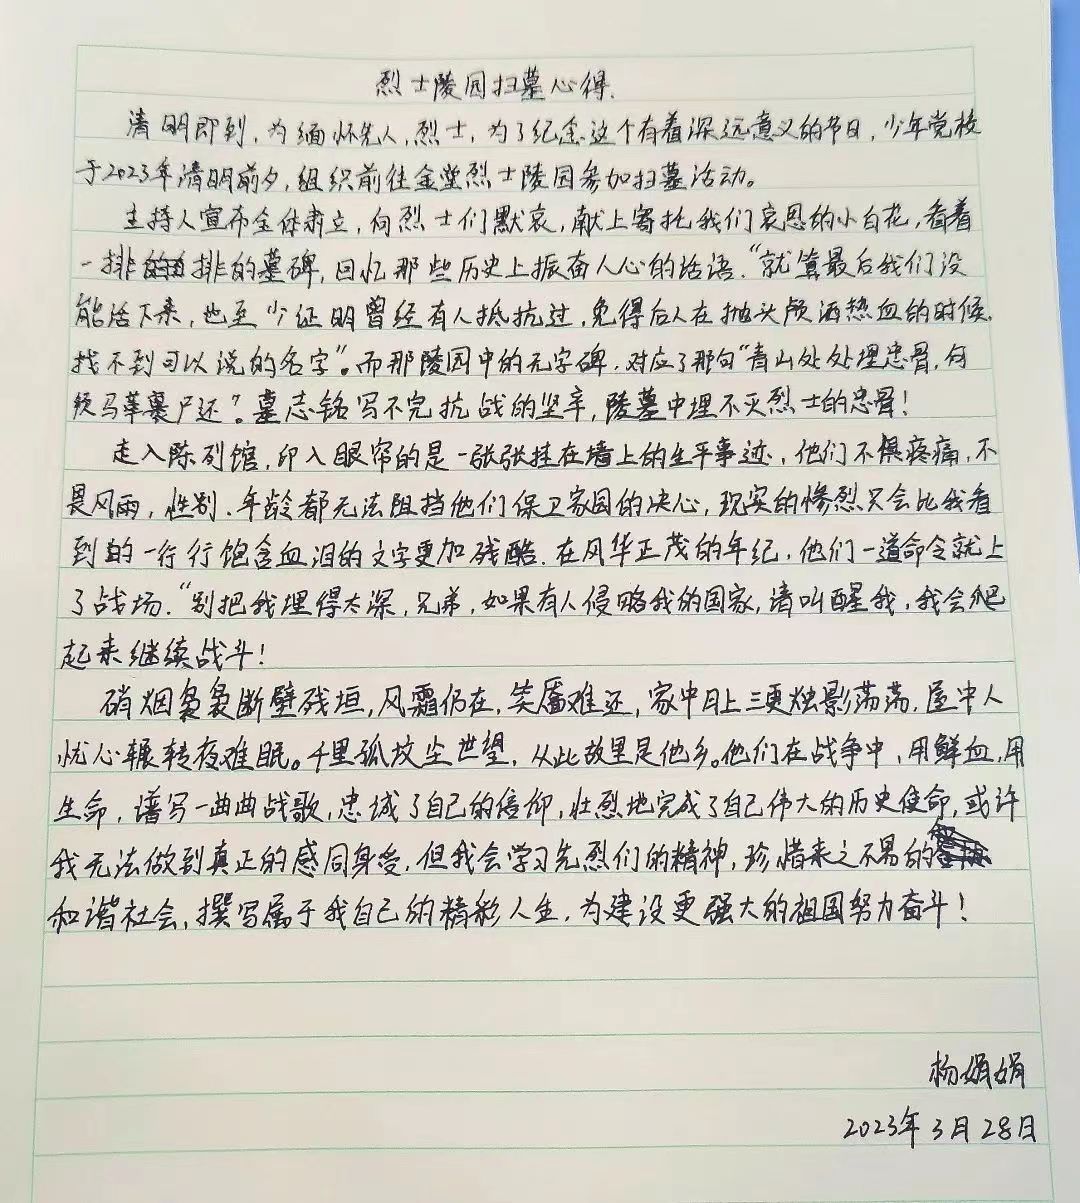 烈士陵园扫墓心得.
清明即到,为缅怀先人,烈士,为了纪念这个有着深远意义的节日,少年党校
于2023年清明前夕,组织前往金堂烈士陵园参加扫墓活动。
主持人宣布全体肃立,向烈士们默哀,献上寄托我们哀思的小白花,看着
一排排的墓碑,回忆那些历史上振奋人心的话语.“就算最后我们没
能活下来,也至少证明曾经有人抵抗过,免得后人在抛头颅洒热血的时候,
找不到可以说的名字”。而那陵园中的无字碑,对应了那句“青山处处埋忠骨,何
须马革裹尸还”。墓志铭写不完抗战的坚辛,陵墓中埋不灭烈士的忠骨!
走入陈列馆,印入眼帘的是一张张挂在墙上的生平事迹,他们不惧疼痛,不
畏风雨,性别、年龄都无法阻挡他们保卫家园的决心,现实的惨烈只会比我看
到的一行行饱含血泪的文字更加残酷.在风华正茂的年纪,他们一道命令就上
了战场.“别把我埋得太深,兄弟,如果有人侵略我的国家,请叫醒我,我会爬
起来继续战斗!
硝烟袅袅断壁残垣,风霜仍在,笑靥难还,家中月上三更烛影荡荡,屋中人
忧心辗转夜难眠。千里孤坟尘世望,从此故里是他乡。他们在战争中,用鲜血,用
生命,谱写一曲曲战歌,忠诚了自己的信仰,壮烈地完成了自己伟大的历史使命,或许
我无法做到真正的感同身受,但我会学习先烈们的精神,珍惜来之不易的
和谐社会,撰写属于我自己的精彩人生,为建设更强大的祖国努力奋斗!
杨娟娟
2023年3月28日